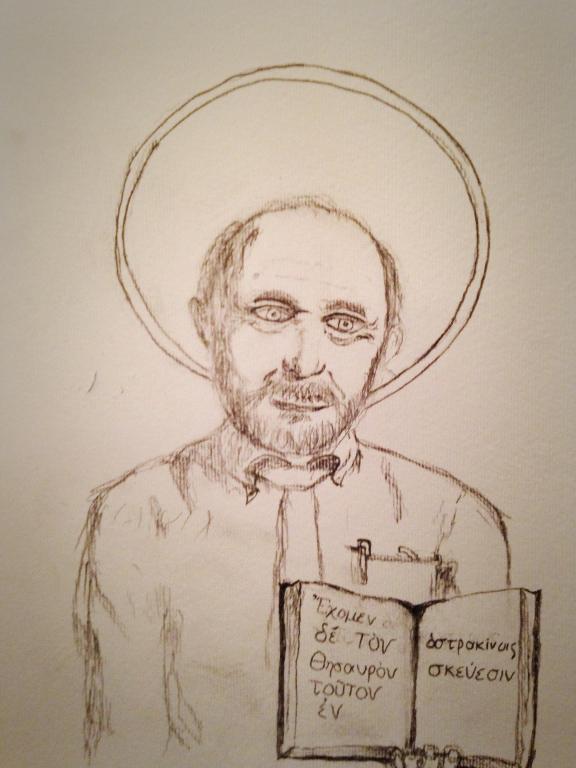 Ἔχομεν
δέ τὸν
θησαυρὸν
τοῦτον
ἐν
ὀστρακίνοις
σκεύεσιν